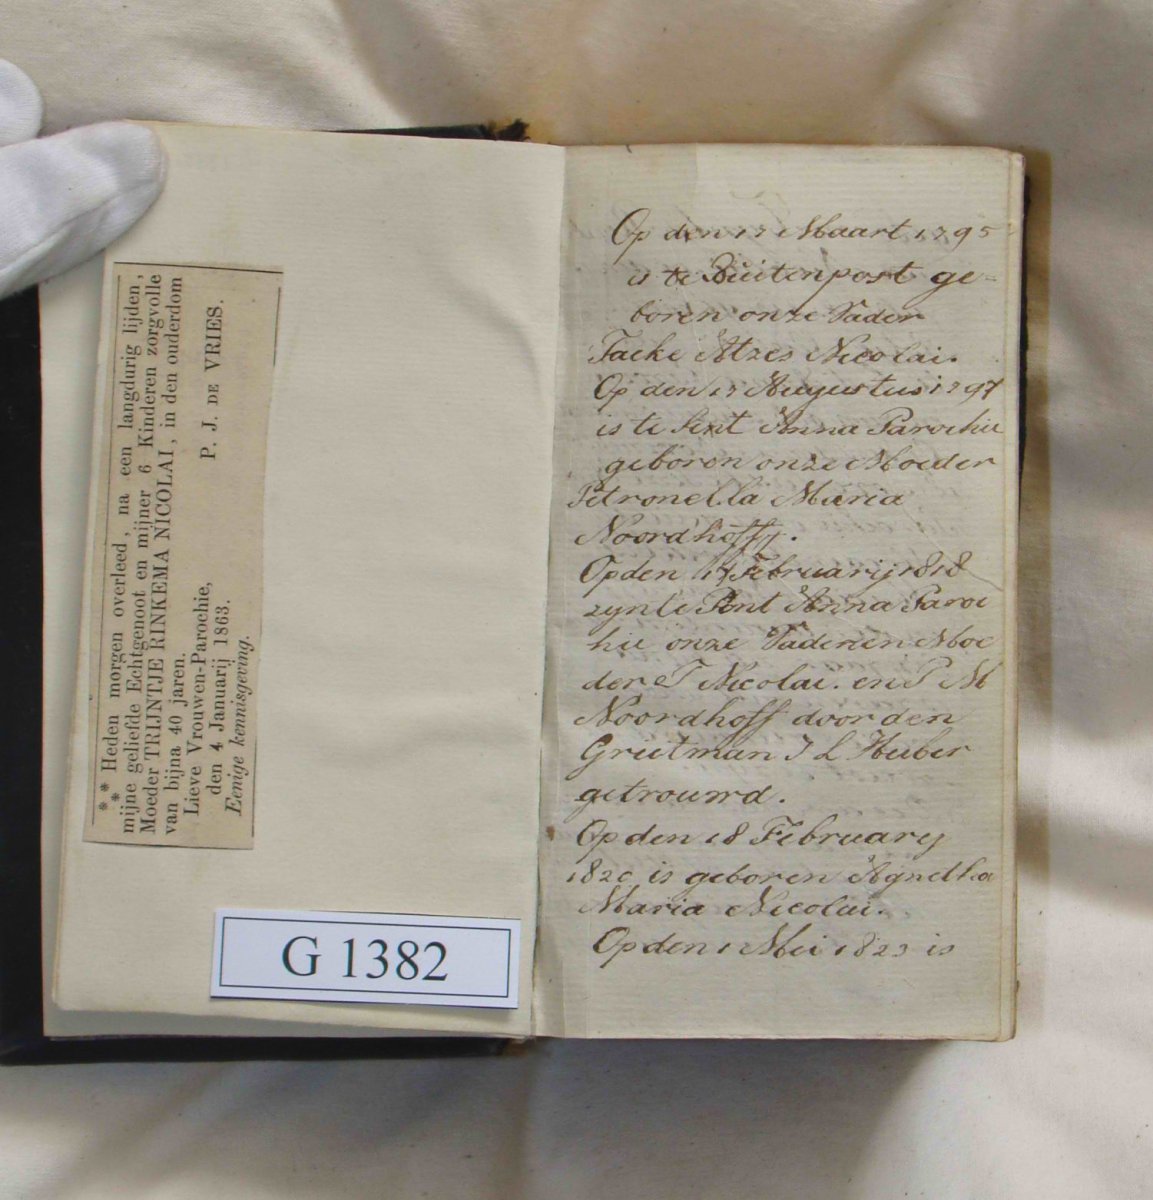 ** Heden morgen overleed, na een langdurig lijden,
mijne geliefde Echtgenoot en mijner 6 Kinderen zorgvolle
Moeder TRIJNTJE RINKEMA NICOLAI, in den ouderdom
van bijna 40 jaren.
Lieve Vrouwen-Parochie,
P. J. DE VRIES.
den 4 Januarij 1863.
Eenige kennisgeving.
G 1382
Op den 17 Maart 1795
is te Buitenpost ge-
boren onze Vader
Tacke Atzes Nicolai.
Op den 17 Augustus 1797
is te Sint Anna Parochie
geboren onze Moeder
Petronella Maria
Noordhoff.
Op den 14 Februarij 1818
zyn te Sint Anna Paroc
hie onze Vader en Moe
der T Nicolai. en P M
Noordhoff door den
Grietman J L Huber
getrouwd.
Op den 18 February
1820 is geboren Agnetha
Maria Nicolai.
Op den 1 Mei 1823 is